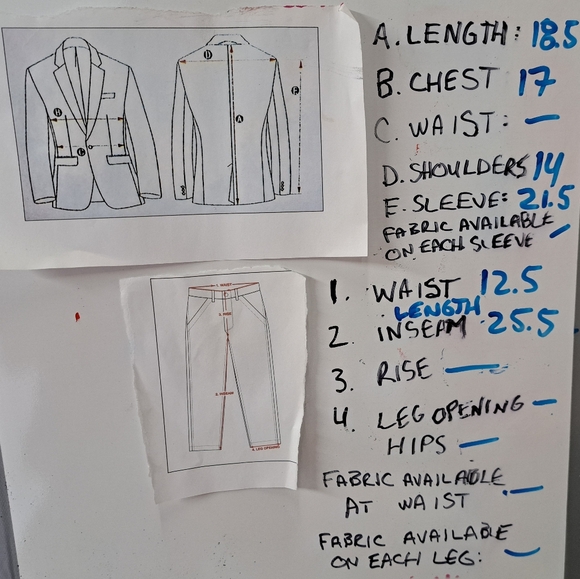 A. LENGTH: 18.5
B. CHEST 17
C. WAIST: —
D. SHOULDERS 14
E. SLEEVE: 21.5
FABRIC AVAILABLE
ON EACH SLEEVE —
B
C
D
A
E
1. WAIST 12.5
LENGTH
2. INSEAM 25.5
3. RISE —
4. LEG OPENING —
HIPS —
FABRIC AVAILABLE
AT WAIST —
FABRIC AVAILABLE
ON EACH LEG: —
1. WAIST
3. RISE
2. INSEAM
4. LEG OPENING